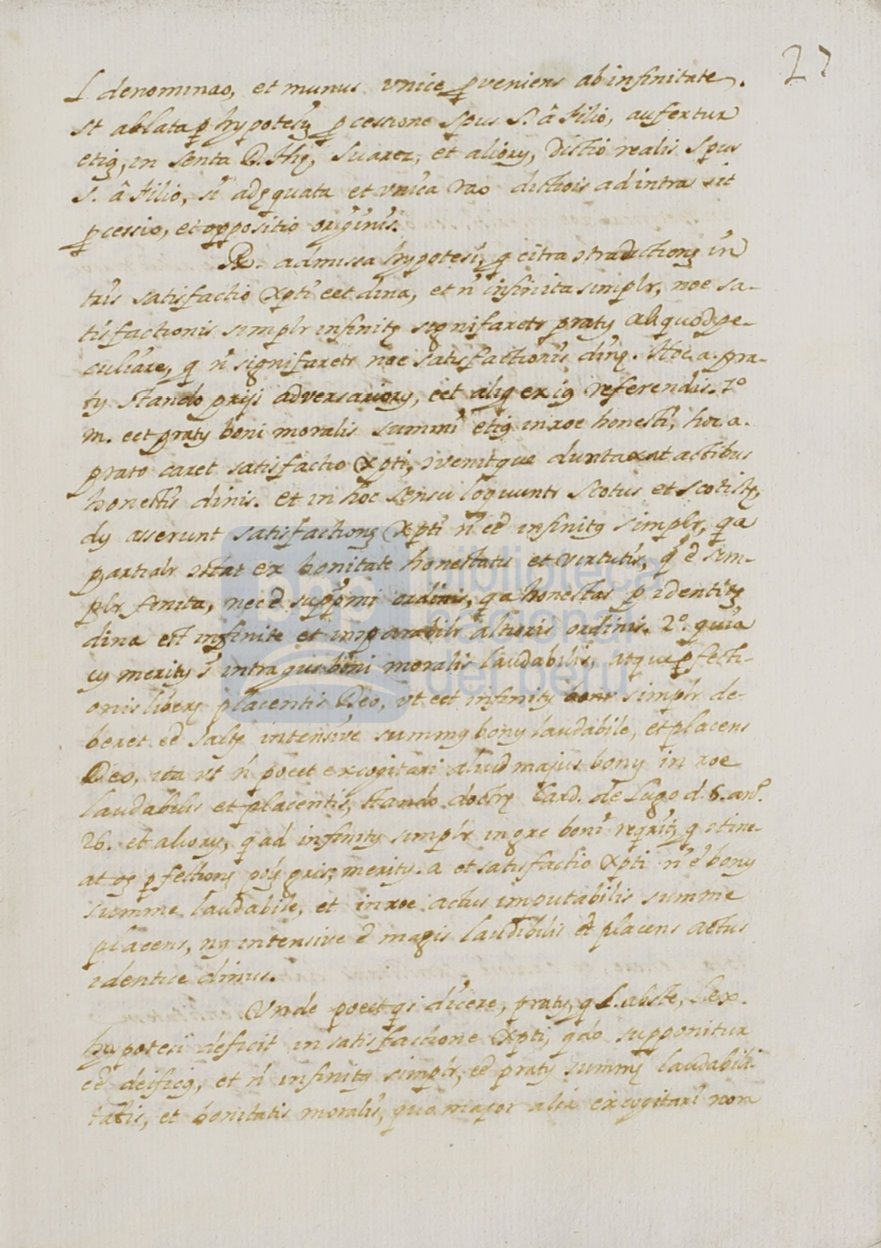 27
l denominao, et munus unice pveniens ab infinitate.
st ablata p hypotesim pcessione Spus S. â Filio, aufertur
etiq, in senta D. Thę, Suarez, et aliory, distio realis Spus
S. â Filio, si adęquata et unica rao distiois ad intra sit
pcessio, et oppositio originis.
R. admissa hypotesi, q citra stradictionę in
tris satisfactio Xpti eet dina, et ñ infinita simplr, noe sa-
tisfactionis simplr infinitę significarets praty aliquod pe-
culiare, q ñ significarets noe satisfactionis dinę. Hoc a. pra-
ty stando prisi adversariory, eet aliq ex iq referendis. 1º
m. eet praty boni moralis summi etiq in roe honesti, hoc a.
prato caret satisfactio Xpti, venitque duntaxat actibus
honestis dinis. et in hoc sensu loquunts Scotus et Scotistę,
dy asserunt satisfactionę Xpti ñ eê infinitq simplr, qa
partialr stat ex bonitate honestatis et virtutis, q ê sim-
plr finita, nec ê suppmi ordinis, qa honestas p identitę
dina est infinite et imparabilr altioris ordinis. 2º quia
cy merity s intra gus boni moralis laudabilis, atque pfecti-
onis liberę placentis Deo, ut eet infinity simplr de-
beret eê salty intensive summy bony laudabile, et placens
Deo, ita ut ñ poeet excogitari aliud majus bony in roe
laudabilis et placentis, stando doctrę Card. de Lugo d. 6. anº.
26. et aliory, q ad infinity simplr in gre boni reqrit, q stine-
at oę pfectionę pöy gris; merity a et satisfactio Xpti ñ ê bony
summe laudabile, et in roe actus imputabilis summe
placens, nq intensive ê magis laudabilis et placens actus
identice dinus.
Unde poeet qs dicere, praty, q l. abste, l. ex
hypotesi deficit in satisfactione Xpti, qdo supponitur
eê deificq, et ñ infinity simplr, eê praty summę laudabili-
tatis, et bonitatis moralis, qua major alia excogitari non
biblioteca
nacional
del perú